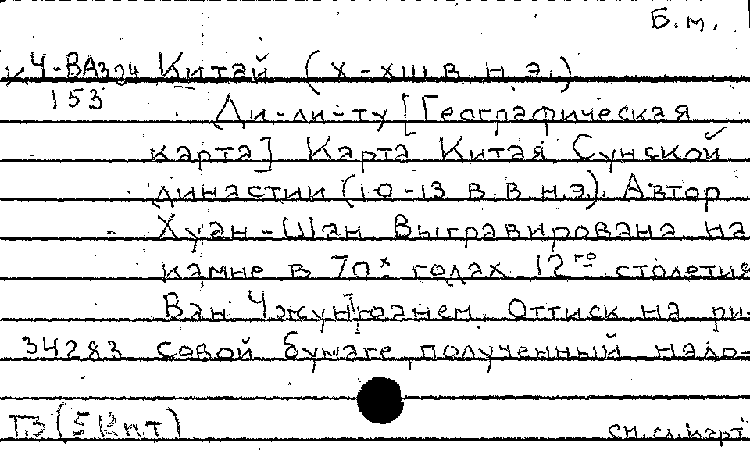 Б.м.
к Ч-ВА324 Китай (X-XIII в н.э.)
153
Ди-ли-ту [Географическая
карта] Карта Китая Сунской
династии (10-13 в.в.н.э). Автор
Хуан-Шан Выгравирована на
камне в 70х годах 12го столетия
Ван Чжун]юанем. Оттиск на ри-
34283 совой бумаге, полученный надо-
ТЗ (5 Кит)
см.сл.карт